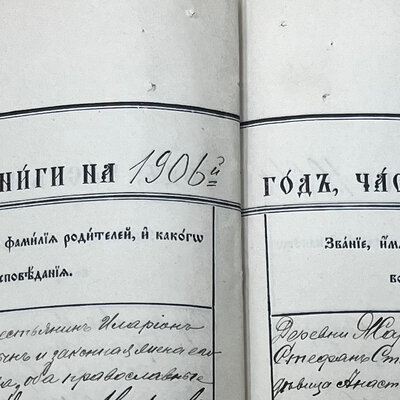 НИ́ГИ НА 1906й ГО́ДЪ, ЧА́С
фами́лїѧ роди́телей, и҆ како́гѡ
сповѣ́данїѧ.
Зва́нїе, и҆́м
во
естьянинъ Иларіонъ
и законная жена его
оба православные
Деревни
Стефанъ Ст
дѣвица Анаст